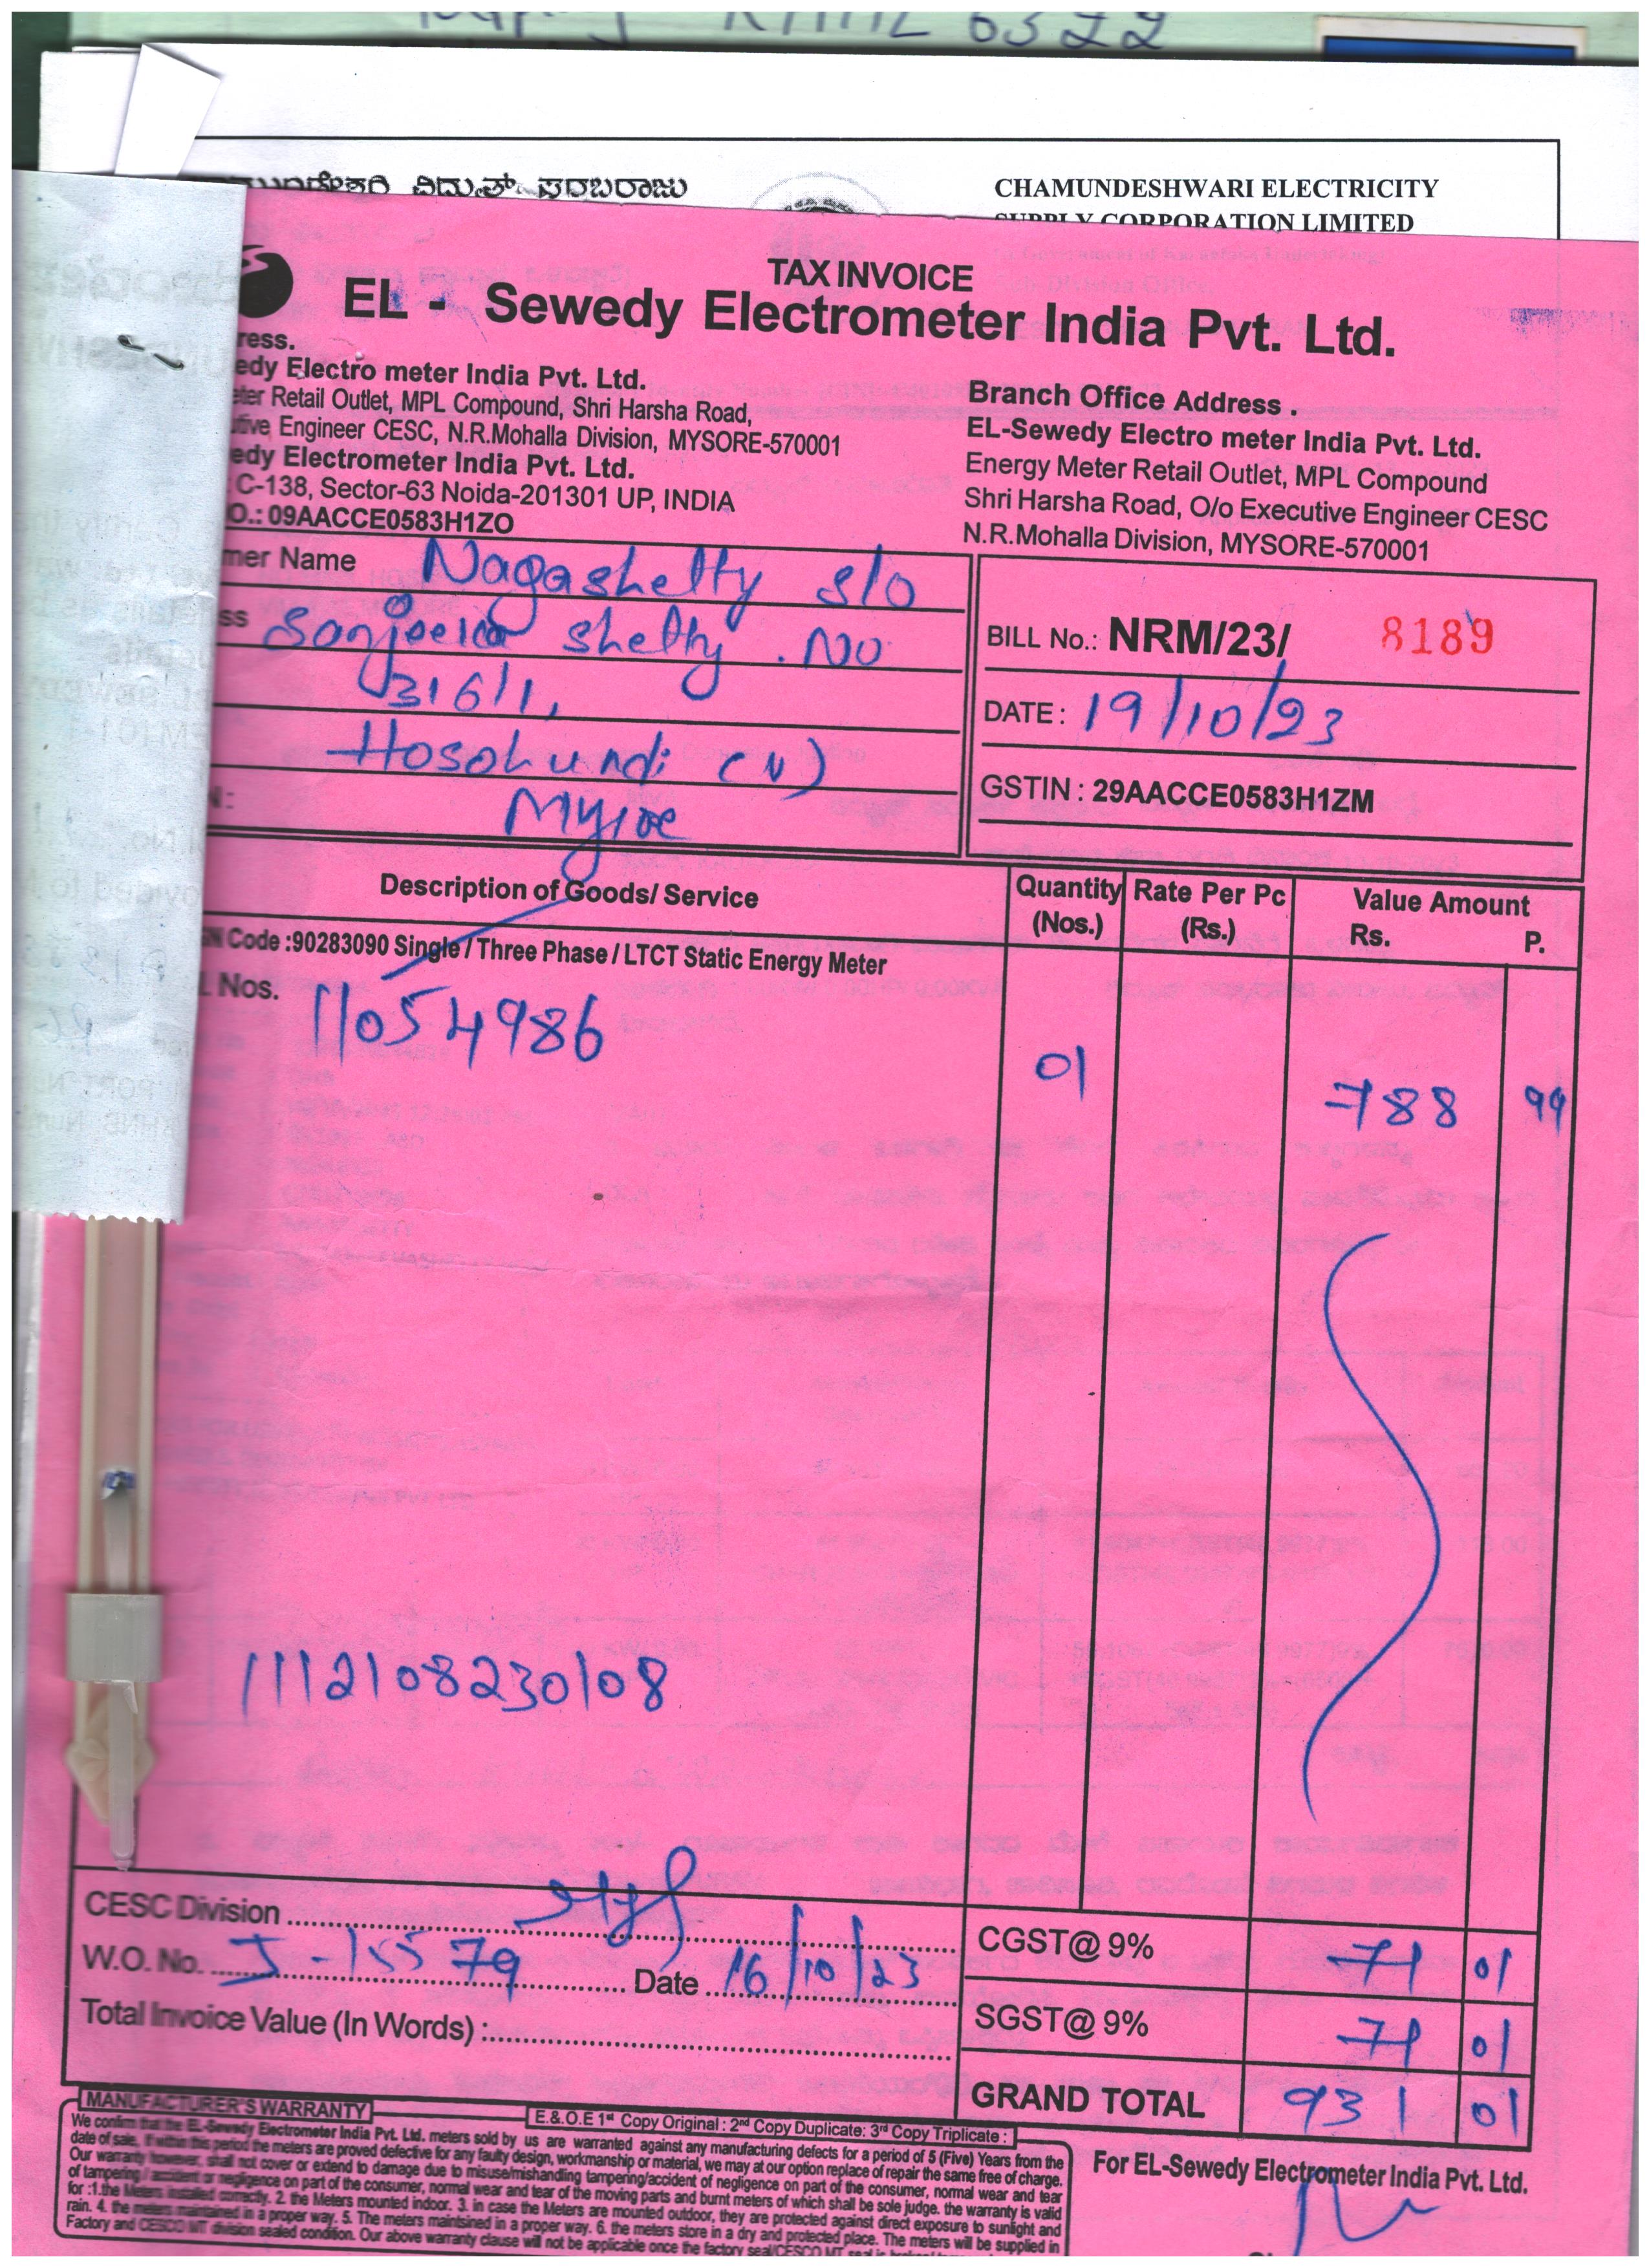 6322
ವಿದ್ಯುತ್ ಸರಬರಾಜು
CHAMUNDESHWARI ELECTRICITY
SUPPLY CORPORATION LIMITED
TAX INVOICE
EL - Sewedy Electrometer India Pvt. Ltd.
ress.
edy Electro meter India Pvt. Ltd.
eter Retail Outlet, MPL Compound, Shri Harsha Road,
utive Engineer CESC, N.R.Mohalla Division, MYSORE-570001
edy Electrometer India Pvt. Ltd.
C-138, Sector-63 Noida-201301 UP, INDIA
O.: 09AACCE0583H1ZO
Branch Office Address .
EL-Sewedy Electro meter India Pvt. Ltd.
Energy Meter Retail Outlet, MPL Compound
Shri Harsha Road, O/o Executive Engineer CESC
N.R.Mohalla Division, MYSORE-570001
mer Name Nagashetty S/O
ss Sanjeeva Shetty . No
316/1,
Hosohundi (V)
N: Mysore
BILL No.: NRM/23/ 8189
DATE : 19/10/23
GSTIN : 29AACCE0583H1ZM
Description of Goods/ Service Quantity (Nos.) Rate Per Pc (Rs.) Value Amount Rs. P.
N Code :90283090 Single / Three Phase / LTCT Static Energy Meter
L Nos. 11054986
01 788 99
1112108230108
CESC Division
W.O. No. J-15579 Date 16/10/23
Total Invoice Value (In Words) :
CGST@ 9% 71 01
SGST@ 9% 71 01
GRAND TOTAL 931 01
MANUFACTURER'S WARRANTY
E.&.O.E 1st Copy Original : 2nd Copy Duplicate: 3rd Copy Triplicate :
We confirm that the EL-Sewedy Electrometer India Pvt. Ltd. meters sold by us are warranted against any manufacturing defects for a period of 5 (Five) Years from the
date of sale. If within this period the meters are proved defective for any faulty design, workmanship or material, we may at our option replace of repair the same free of charge.
Our warranty however, shall not cover or extend to damage due to misuse/mishandling tampering/accident of negligence on part of the consumer, normal wear and tear
of tampering / accident or negligence on part of the consumer, normal wear and tear of the moving parts and burnt meters of which shall be sole judge. the warranty is valid
for :1.the Meters installed correctly. 2. the Meters mounted indoor. 3. in case the Meters are mounted outdoor, they are protected against direct exposure to sunlight and
rain. 4. the meters maintained in a proper way. 5. The meters maintsined in a proper way. 6. the meters store in a dry and protected place. The meters will be supplied in
Factory and CESCO MT division sealed condition. Our above warranty clause will not be applicable once the factory seal/CESCO MT seal is
For EL-Sewedy Electrometer India Pvt. Ltd.